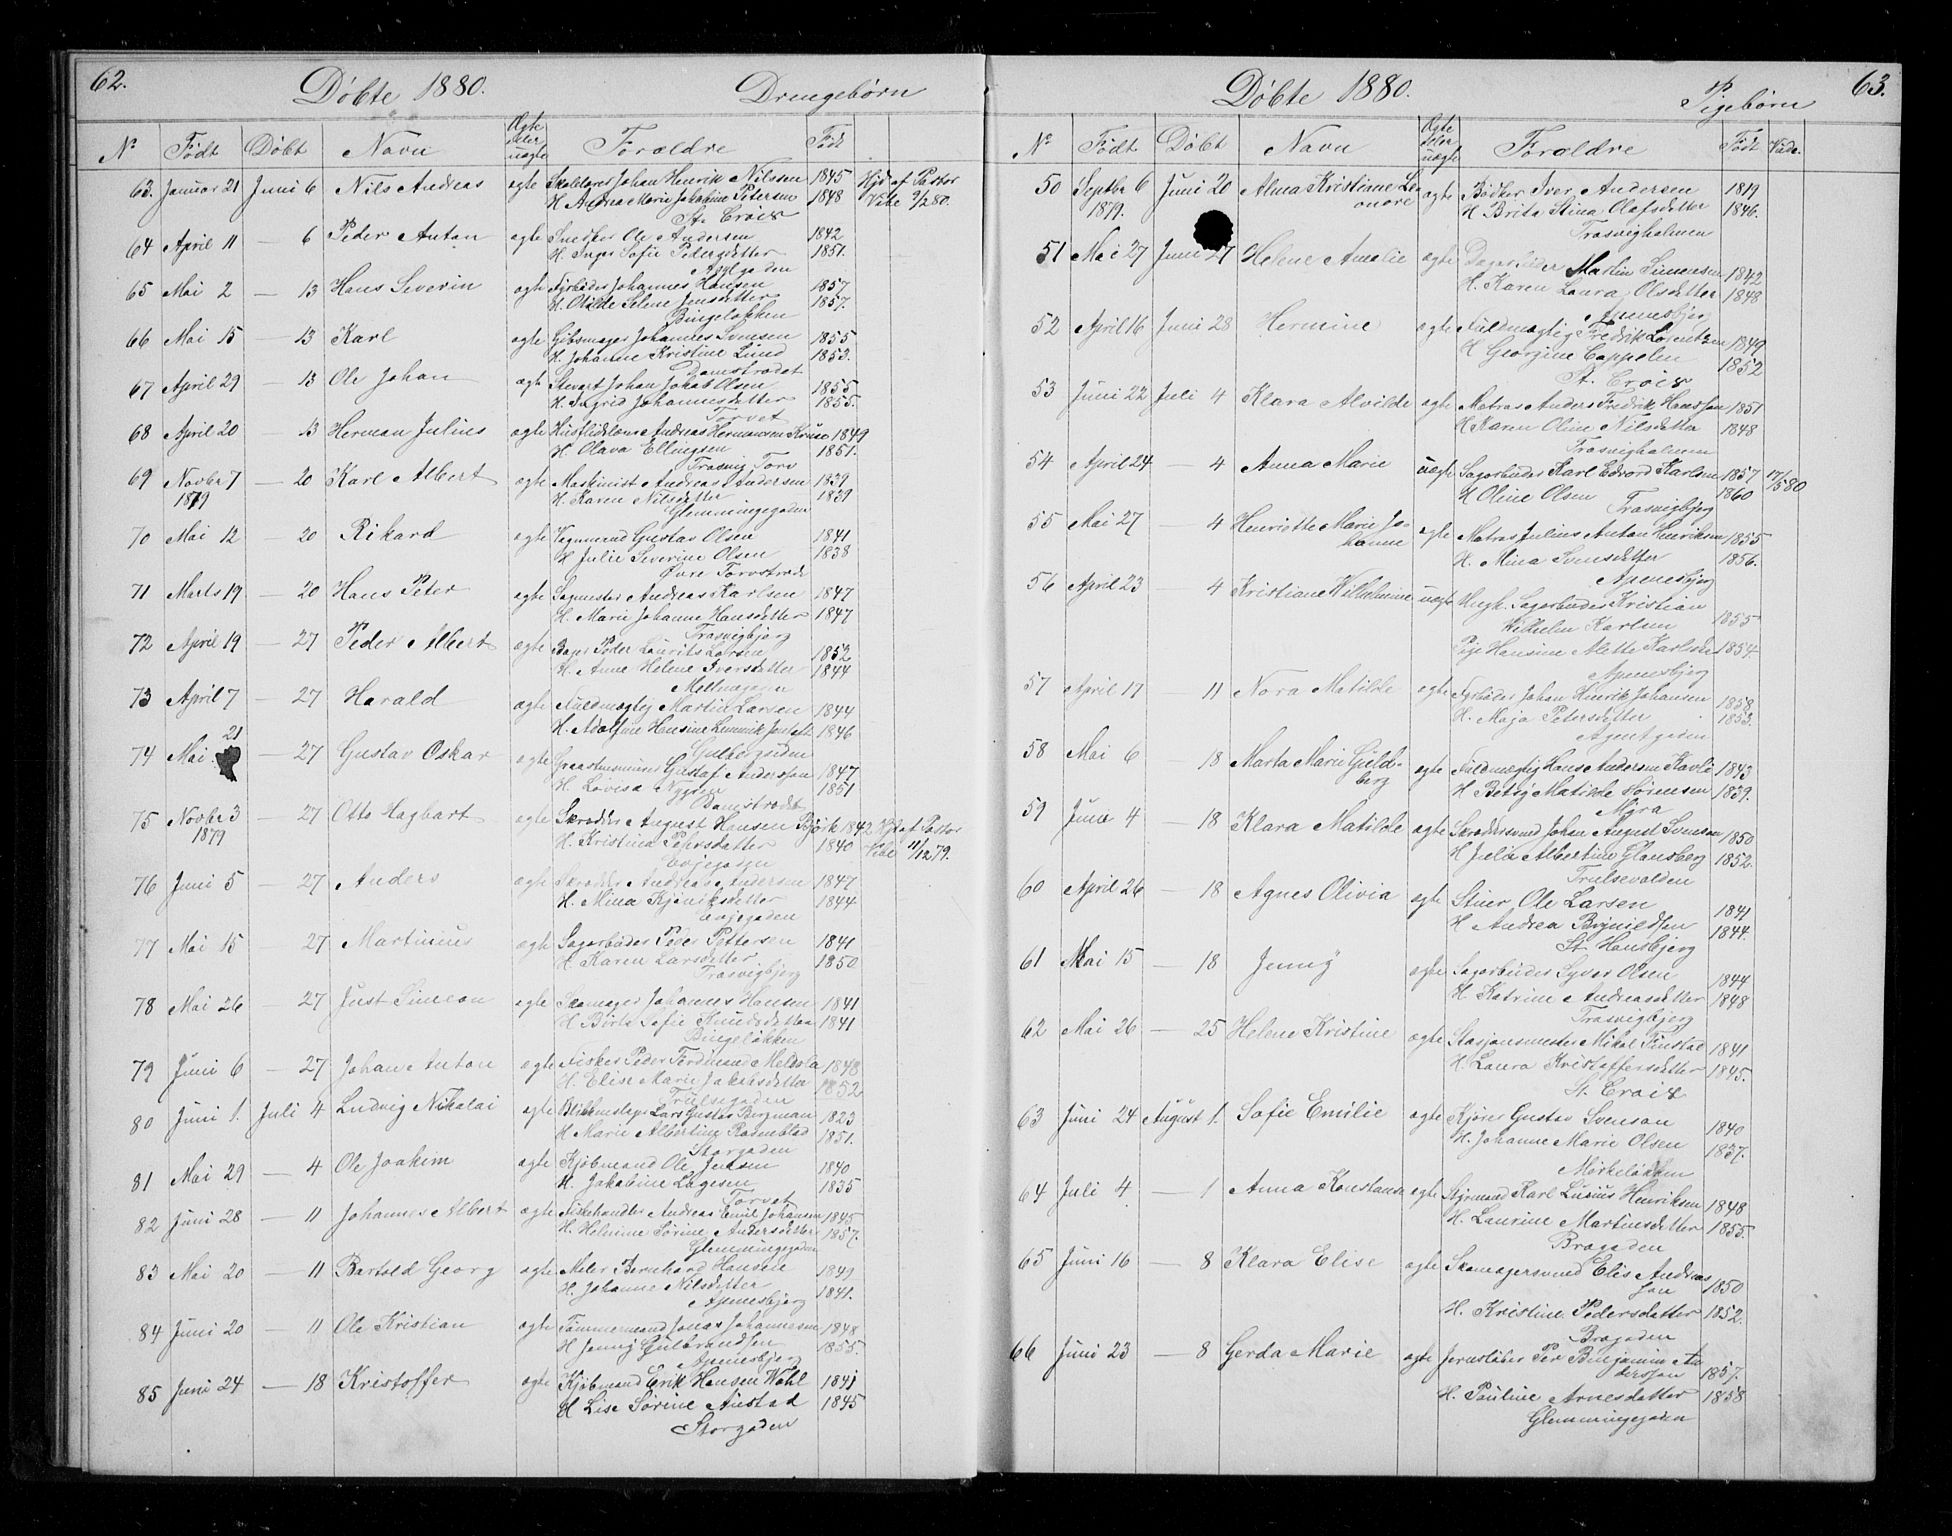 62.
Døbte 1880. Drengebørn
No Født Døbt Navn Ægte eller uægte Forældre Født
63. Januar 21 Juni 6 Nils Andreas ægte Skolelærer Johan Henrik Nilssen 1845 Hjd af Pastor
H. Andrea Marie Johanne Petersen 1848 Vibe 3/2 80.
St. Croix
64 April 11 — 6 Peder Anton ægte Snedker Ole Andersen 1842
H. Inger Sofie Pedersdetter 1851.
Asylgaden
65 Mai 2 — 13 Hans Severin ægte Fyrbøder Johannes Hansen 1857
H. Otilde Selene Jensdetter 1857.
Bingeløkken
66 Mai 15 — 13 Karl ægte Gibsmager Johannes Svensen 1855
H. Johanne Kristine Lund 1852.
Damstrædet
67 April 29 — 13 Ole Johan ægte Stevart Johan Jakob Olsen 1855
H. Ingrid Johannesdetter 1855.
Torvet
68 April 20 — 13 Herman Julius ægte Andreas Hermansen Kruse 1849
H. Olava Ellingsen 1851.
Trosvig Torv
69 Novbr 7 — 20 Karl Albert ægte Maskinist Andreas Andersen 1839
1879 H. Karen Nilsdetter 1839
Glemmingegaden
70 Mai 12 — 20 Rikard ægte Vognmand Gustav Olsen 1841
H. Julie Severine Olsen 1838
Øvre Torvstræde
71 Marts 19 — 20 Hans Peter ægte Sagmester Andreas Karlsen 1847
H. Marie Johanne Hansdetter 1847
Trosvigbjerg
72 April 19 — 27 Peder Albert ægte Bager Peder Laurits Larsen 1852
H. Anne Helene Iversdetter 1844
Mellemgaden
73 April 7 — 27 Harald ægte Fuldmægtig Martin Larsen 1844
H. Adolfine Hansine 1846
Gulbergsiden
74 Mai 21 — 27 Gustav Oskar ægte Gustaf Andersson 1847
H. Lovisa Nygren 1851
Damstrædet
75 Novbr 3 — 27 Otto Hagbart ægte Skrædder August Hansen Bjørk 1842 Hjd af Pastor
1879 H. Kristina Pehrsdatter 1840 Vibe 11/12 79.
76 Juni 5 — 27 Anders ægte Skrædder Andreas Andersen 1847
H. Mina 1844
77 Mai 15 — 27 Martinius ægte Sagarbeider Peder Pettersen 1841
H. Karen Larsdetter 1850
Trosvigbjerg
78 Mai 26 — 27 Just Simeon ægte Skomager Johannes Hansen 1841
H. Børta Sofie Knudsdetter 1841
Bingeløkken
79 Juni 6 — 27 Johan Anton ægte Fisker Peder Ferdinand 1848
H. Elise Marie Jakobsdetter 1852
Trulsegaden
80 Juni 1. Juli 4 Ludvig Nikolai ægte Blikkenslager Lars Gustav Bergman 1823
H Marie Albertine Rosenblad 1851.
Storgaden
81 Mai 29 — 4 Ole Joakim ægte Kjøbmand Ole Jensen 1840
H. Jakobine Lagesen 1835
Torvet
82 Juni 28 — 11 Johannes Albert ægte Fiskehandler Andreas Emil Johansen 1845
H. Helmine Sørine Andersdetter 1857.
Glemmingegaden
83 Mai 20 — 11 Bartold Georg ægte Maler Bernhard Hansen 1849
H. Johanne Nilsdetter 1841.
Apenesbjerg
84 Juni 20 — 11 Ole Kristian ægte Tømmermand Jonas Johannesen 1848
H Jenny Gulbrandsen 1855.
Apenesbjerg
85 Juni 24 — 18 Kristoffer ægte Kjøbmand Erik Hansen Wahl 1841
H Lise Sørine Austad 1845
Storgaden
63.
Døbte 1880. Pigebørn
No Født Døbt Navn Ægte eller uægte Forældre Født
50 Septbr 6 Juni 20 Alma Kristine Leonore ægte Bødker Iver Andersen 1819
1879. H Brita Stina Olafsdetter 1846.
Trosvigholmen
51 Mai 27 Juni 27 Helene Amalie ægte Dagarbeider Martin Simensen 1842
H. Karen Laura Olsdetter 1848
Apenesbjerg
52 April 16 Juni 28 Hermine ægte Fuldmægtig Fredrik Lorentzen 1849
H Georgine Cappelen 1852
St. Croix
53 Juni 22 Juli 4 Klara Alvilde ægte Matros Anders Fredrik Hansson 1851
H Karen Oline Nilsdetter 1848
Trosvigholmen
54 April 24 — 4 Anna Marie uægte Sagarbeider Karl Edvard Karlsen 1857 17/5 80
H Oline Olsen 1860
Trosvigbjerg
55 Mai 27 — 4 Henriette Marie Johanne ægte Matros Julius Anton Henriksen 1855
H. Mina Svensdetter 1856.
Apenesbjerg
56 April 23 — 4 Kristiane Wilhelmine uægte Ungk. Sagarbeider Kristian
Wilhelm Karlsen 1855
Pige Hansine Alette Karlsen 1854
Apenesbjerg
57 April 17 — 11 Nora Matilde ægte Fyrbøder Johan Henrik Johansen 1858
H. Maja Petersdetter 1853.
Agentgaden
58 Mai 6 — 18 Marta Marie Guldberg ægte Fuldmægtig Hans Andersen Kavli 1843
H Betsy Matilde Sørensen 1839.
Myra
59 Juni 4 — 18 Klara Matilde ægte Skræddersvend Johan August Svenson 1850
H Julie Albertine Glansberg 1852.
60 April 26 — 18 Agnes Olivia ægte Stuer Ole Larsen 1841
H Andrea Brynildsen 1844.
St. Hansbjerg
61 Mai 15 — 18 Jenny ægte Sagarbeider Syver Olsen 1844
H. Katrine Andreasdetter 1848
Trosvigbjerg
62 Mai 26 — 25 Helene Kristine ægte Stasjonsmester Mikal Finstad 1841
H. Laura Kristoffersdetter 1845.
St. Croix
63 Juni 24 August 1. Sofie Emilie ægte Kjører Gustav Svenson 1840
H. Johanne Marie Olsen 1837.
Mørkeløkken
64 Juli 4 — 1 Anna Konstanse ægte Styrmand Karl Lusius Henriksen 1848
H. Laurine Martinsdetter 1855.
Brogaden
65 Juni 16 — 8 Klara Elise ægte Skomagersvend Elis Andreas
son 1850
H. Kristine Pedersdatter 1852.
Brogaden
66 Juni 23 — 8 Gerda Marie ægte Jernstøber Per Benjamin An
dersson 1857.
H. Pauline Arnesdatter 1858
Glemmingegaden